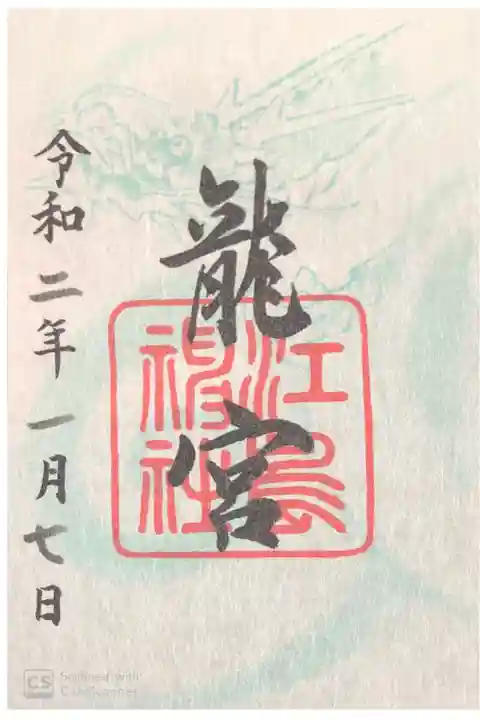 龍宮
江島神社
令和二年一月七日
CS Scanned with
CamScanner